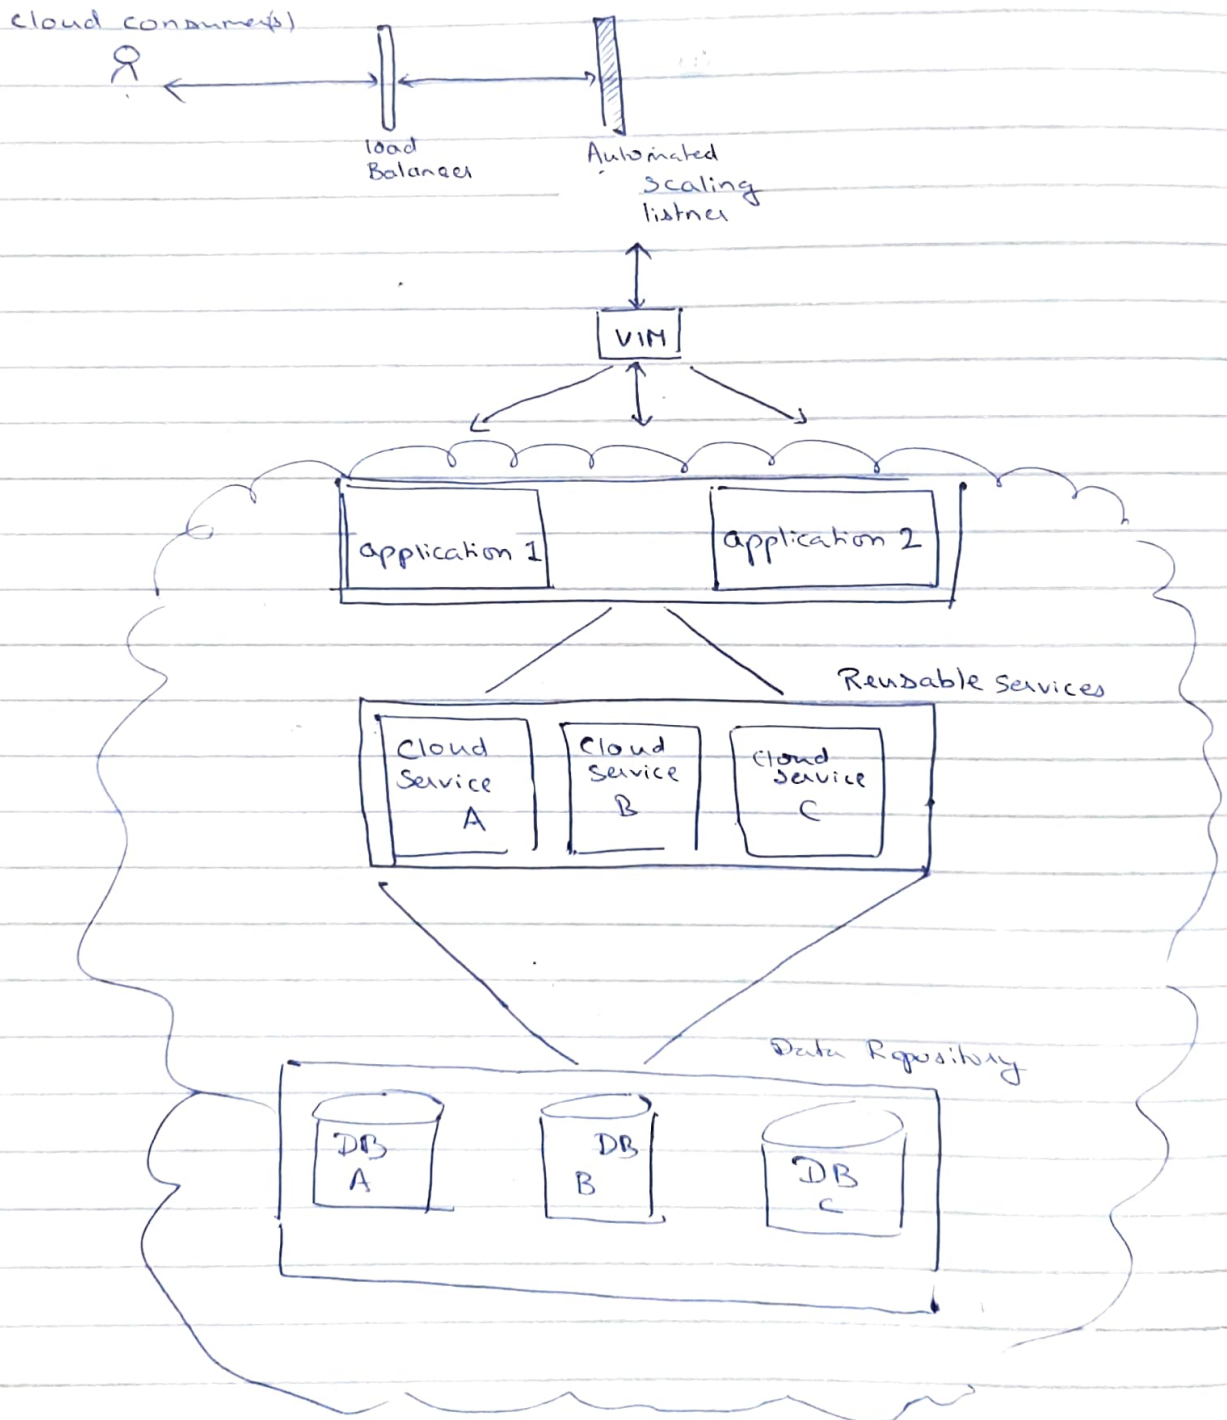 Cloud consumer(s)
load
Balancer
Automated
scaling
listner
VIM
application 1
application 2
Reusable services
Cloud
Service
A
Cloud
Service
B
Cloud
Service
C
Data Repository
DB
A
DB
B
DB
C